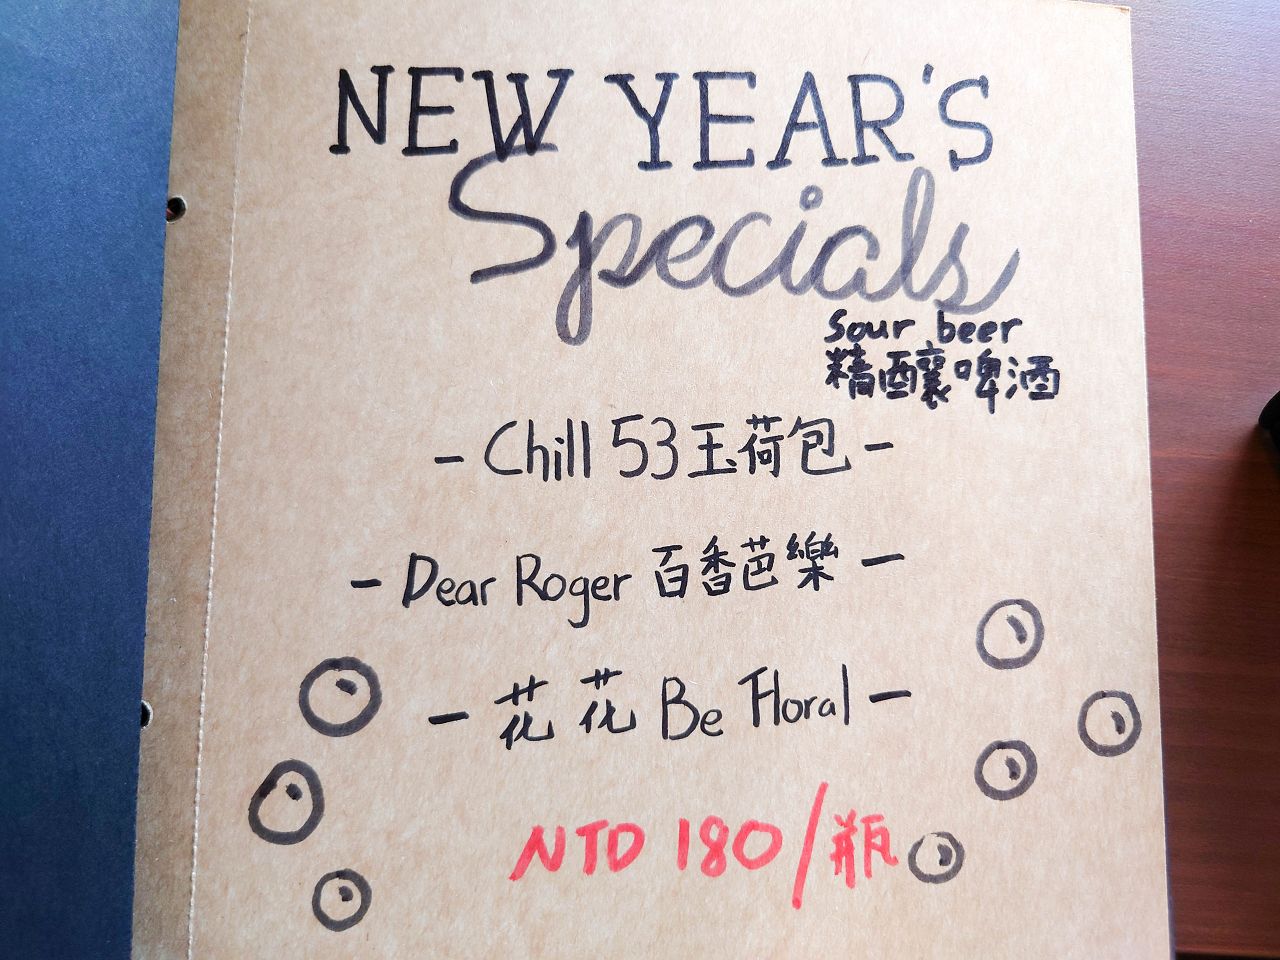 NEW YEAR'S
Specials
Sour beer
精釀啤酒
- Chill 53 玉荷包 -
- Dear Roger 百香芭樂 -
- 花花 Be Floral -
NTD 180/瓶